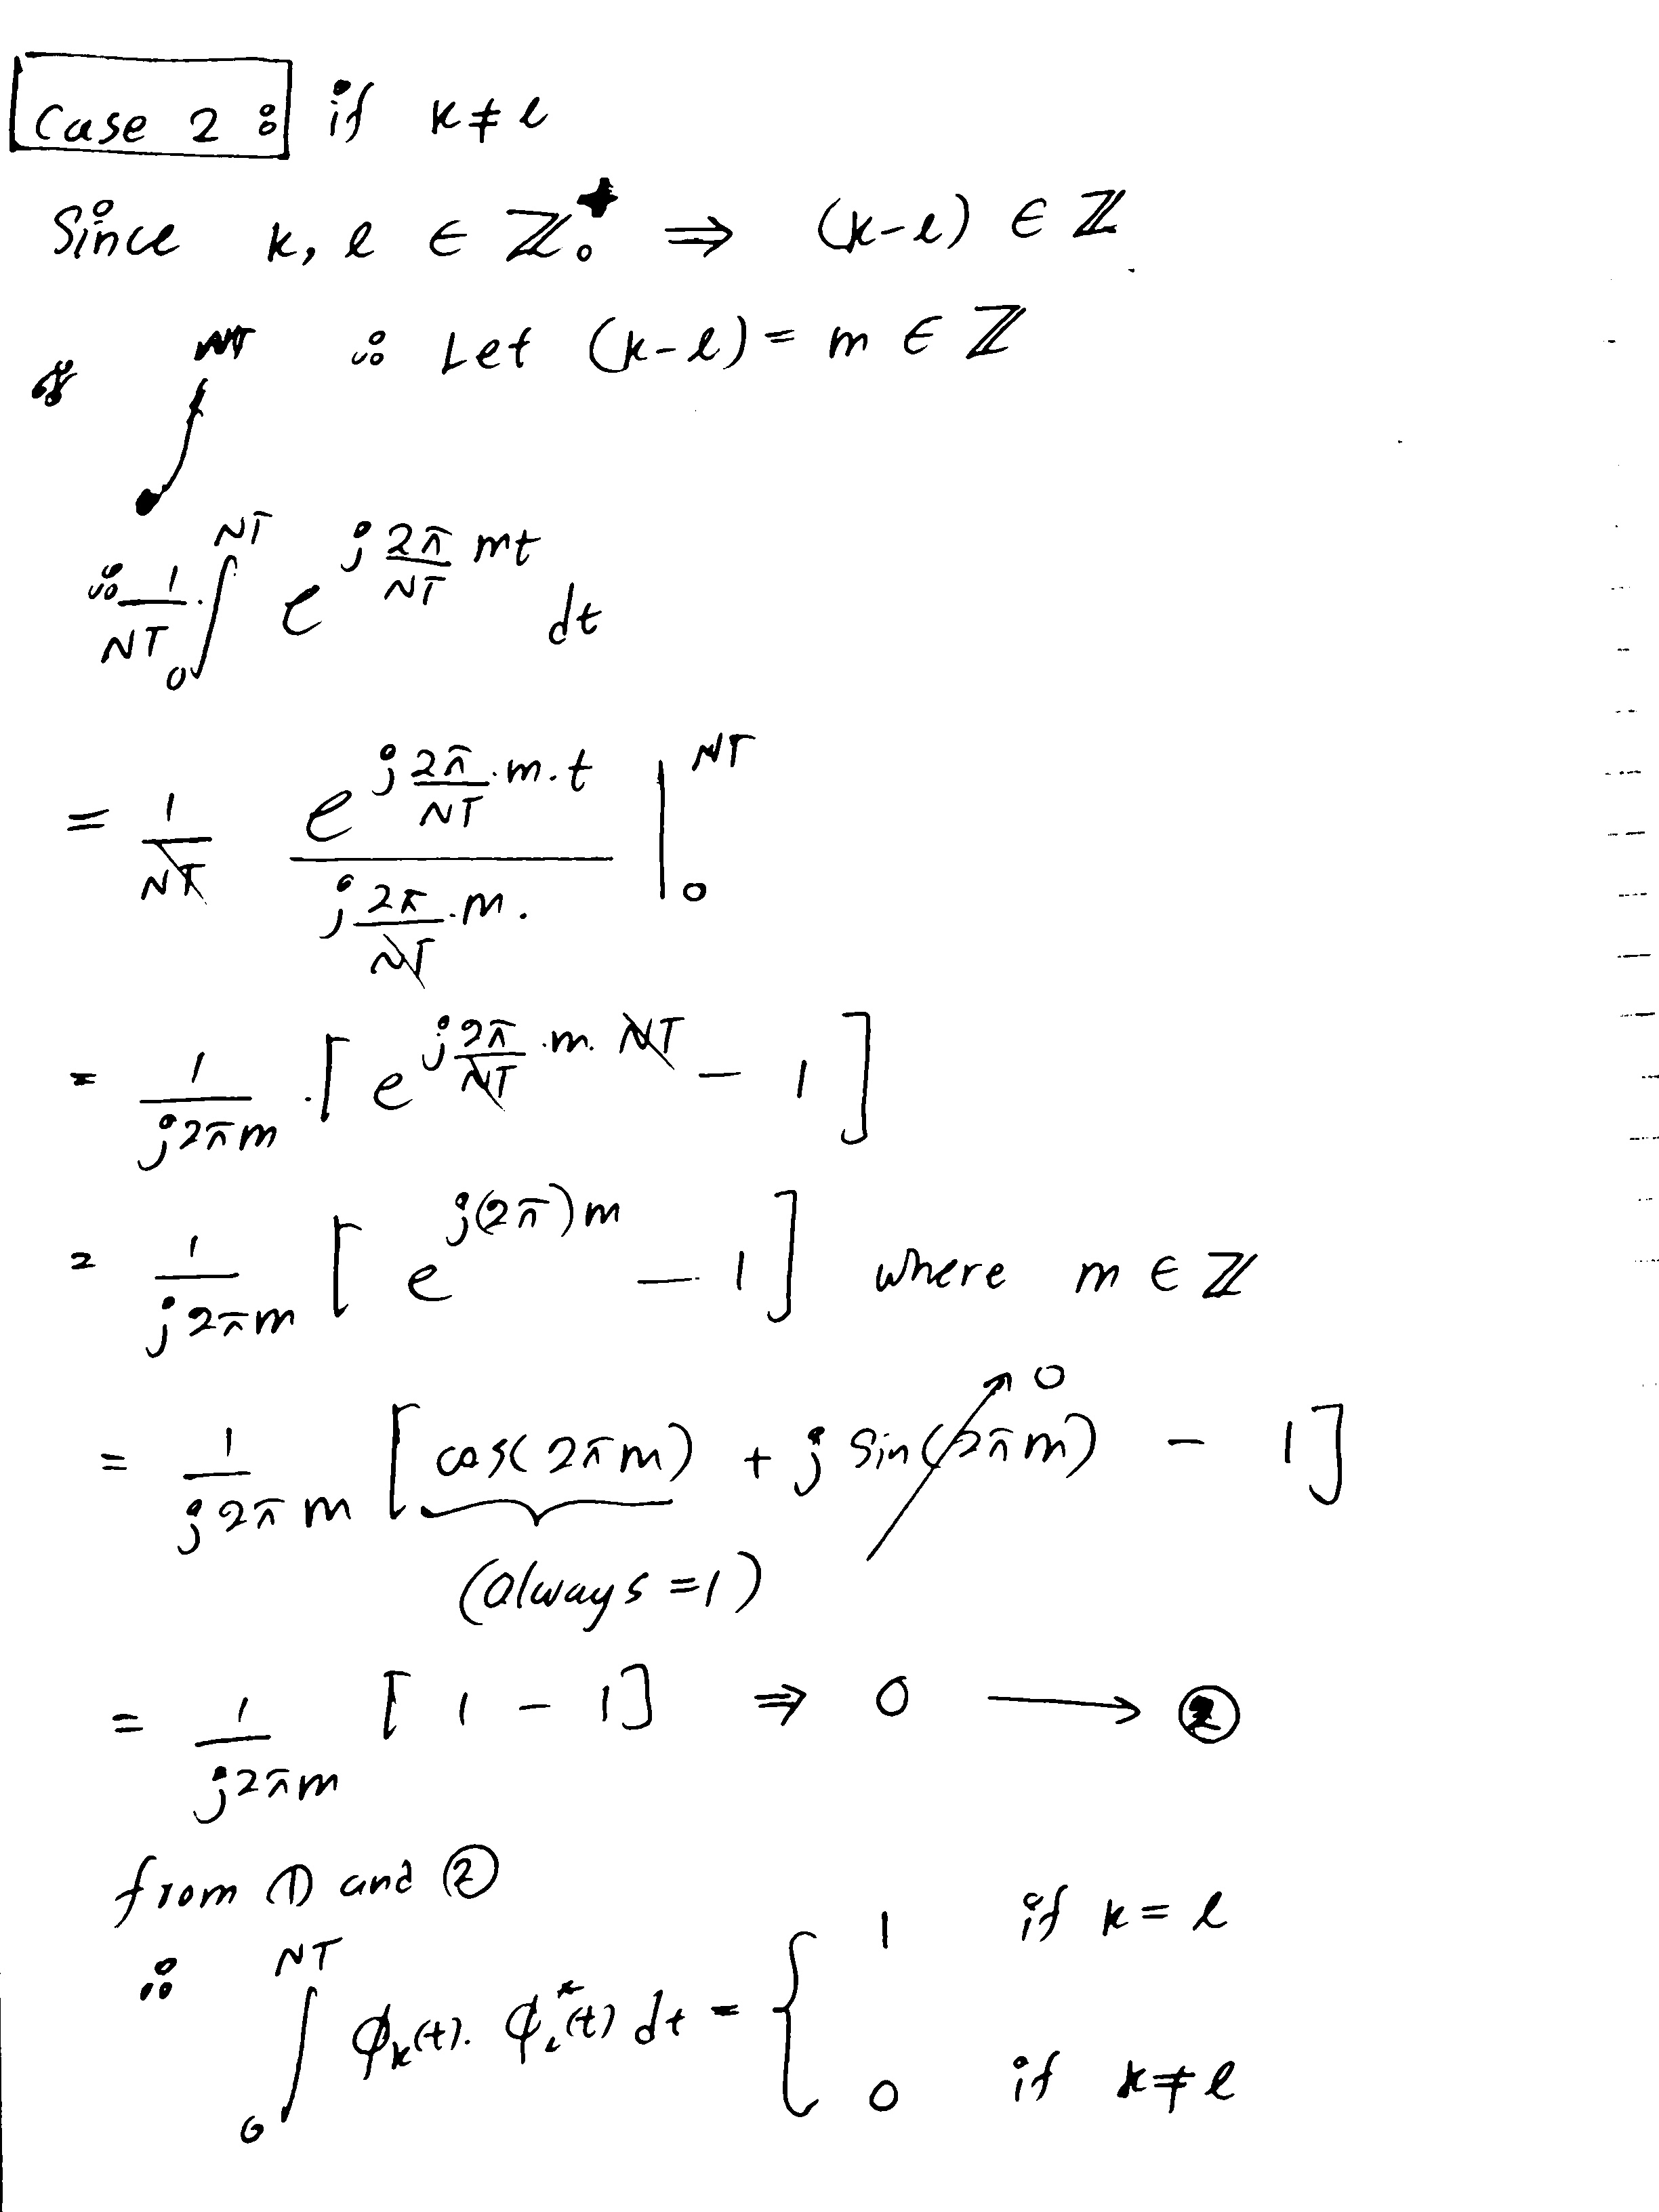 Case 2 : if k ≠ l
Since k, l ∈ ℤ₀⁺ ⇒ (k-l) ∈ ℤ
NT ∴ Let (k-l) = m ∈ ℤ
∫
∴ 1/NT ∫₀^NT e^(j 2π/NT mt) dt
= 1/NT e^(j 2π/NT .m.t) / (j 2π/NT .m.) |₀^NT
= 1/(j2πm) . [ e^(j 2π/NT .m. NT) - 1 ]
= 1/(j2πm) [ e^(j(2π)m) - 1 ] where m ∈ ℤ
= 1/(j2πm) [ cos(2πm) + j sin(2πm) - 1 ]
0
(always = 1)
= 1/(j2πm) [ 1 - 1 ] ⇒ 0 ⟶ ②
from ① and ②
∴ ∫₀^NT ϕₖ(t). ϕₗ*(t) dt = { 1 if k = l
0 if k ≠ l